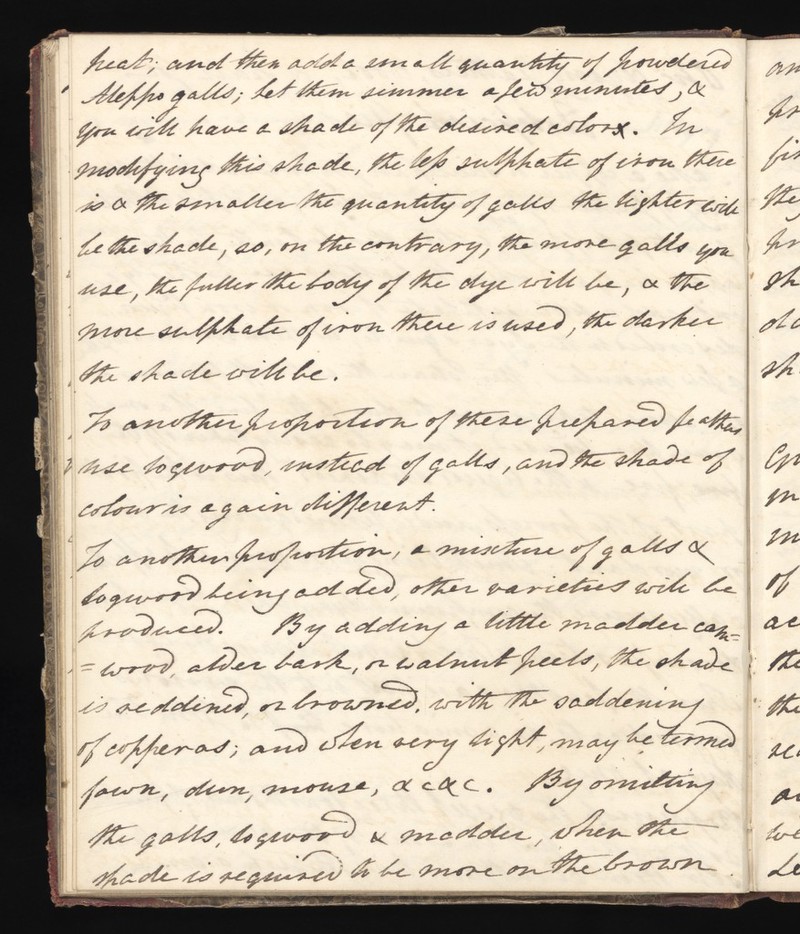 heat; and then add a small quantity of powdered
Aleppo galls; let them simmer a few minutes, &
you will have a shade of the desired color. In
modifying this shade, the less sulphate of iron there
is & the smaller the quantity of galls the lighter will
be the shade, so, on the contrary, the more galls you
use, the fuller the body of the dye will be, & the
more sulphate of iron there is used, the darker
the shade will be.
To another proportion of these prepared feathers
use logwood, instead of galls, and the shade of
colour is again different.
To another proportion, a mixture of galls &
logwood being added, other varieties will be
produced. By adding a little madder cam=
=wood, alder bark, or walnut peels, the shade
is reddened, or browned, with the saddening
of copperas; and when very light, may be termed
fawn, dun, mouse, &c &c. By omitting
the galls, logwood & madder, when the
shade is required to be more on the brown
an
pr
fir
the
pr
sh
old
sh
of
ac
the
the
we